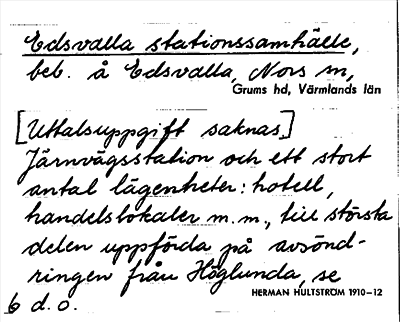 Edsvalla stationssamhälle,
beb. å Edsvalla, Nors sn,
Grums hd, Värmlands län
[Uttalsuppgift saknas]
Järnvägsstation och ett stort
antal lägenheter: hotell,
handelslokaler m.m., till största
delen uppförda på avsönd-
ringen från Höglunda, se
HERMAN HULTSTRÖM 1910–12
6 d. o.